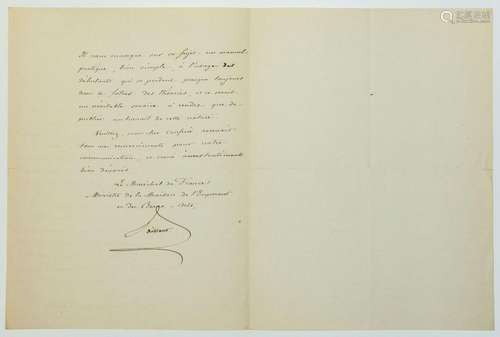 Il nous manque sur ce sujet un manuel
pratique, bien simple, à l'usage des
débutants qui se perdent presque toujours
dans le fatras des théories, et ce serait
un véritable service à rendre que de
publier un travail de cette nature.
Veuillez, mon cher confrère, recevoir
tous mes remerciements pour votre
communication, et croire à mes sentiments
bien dévoués.
Le Maréchal de France,
Ministre de la Maison de l'Empereur
et des Beaux-Arts,
Vaillant